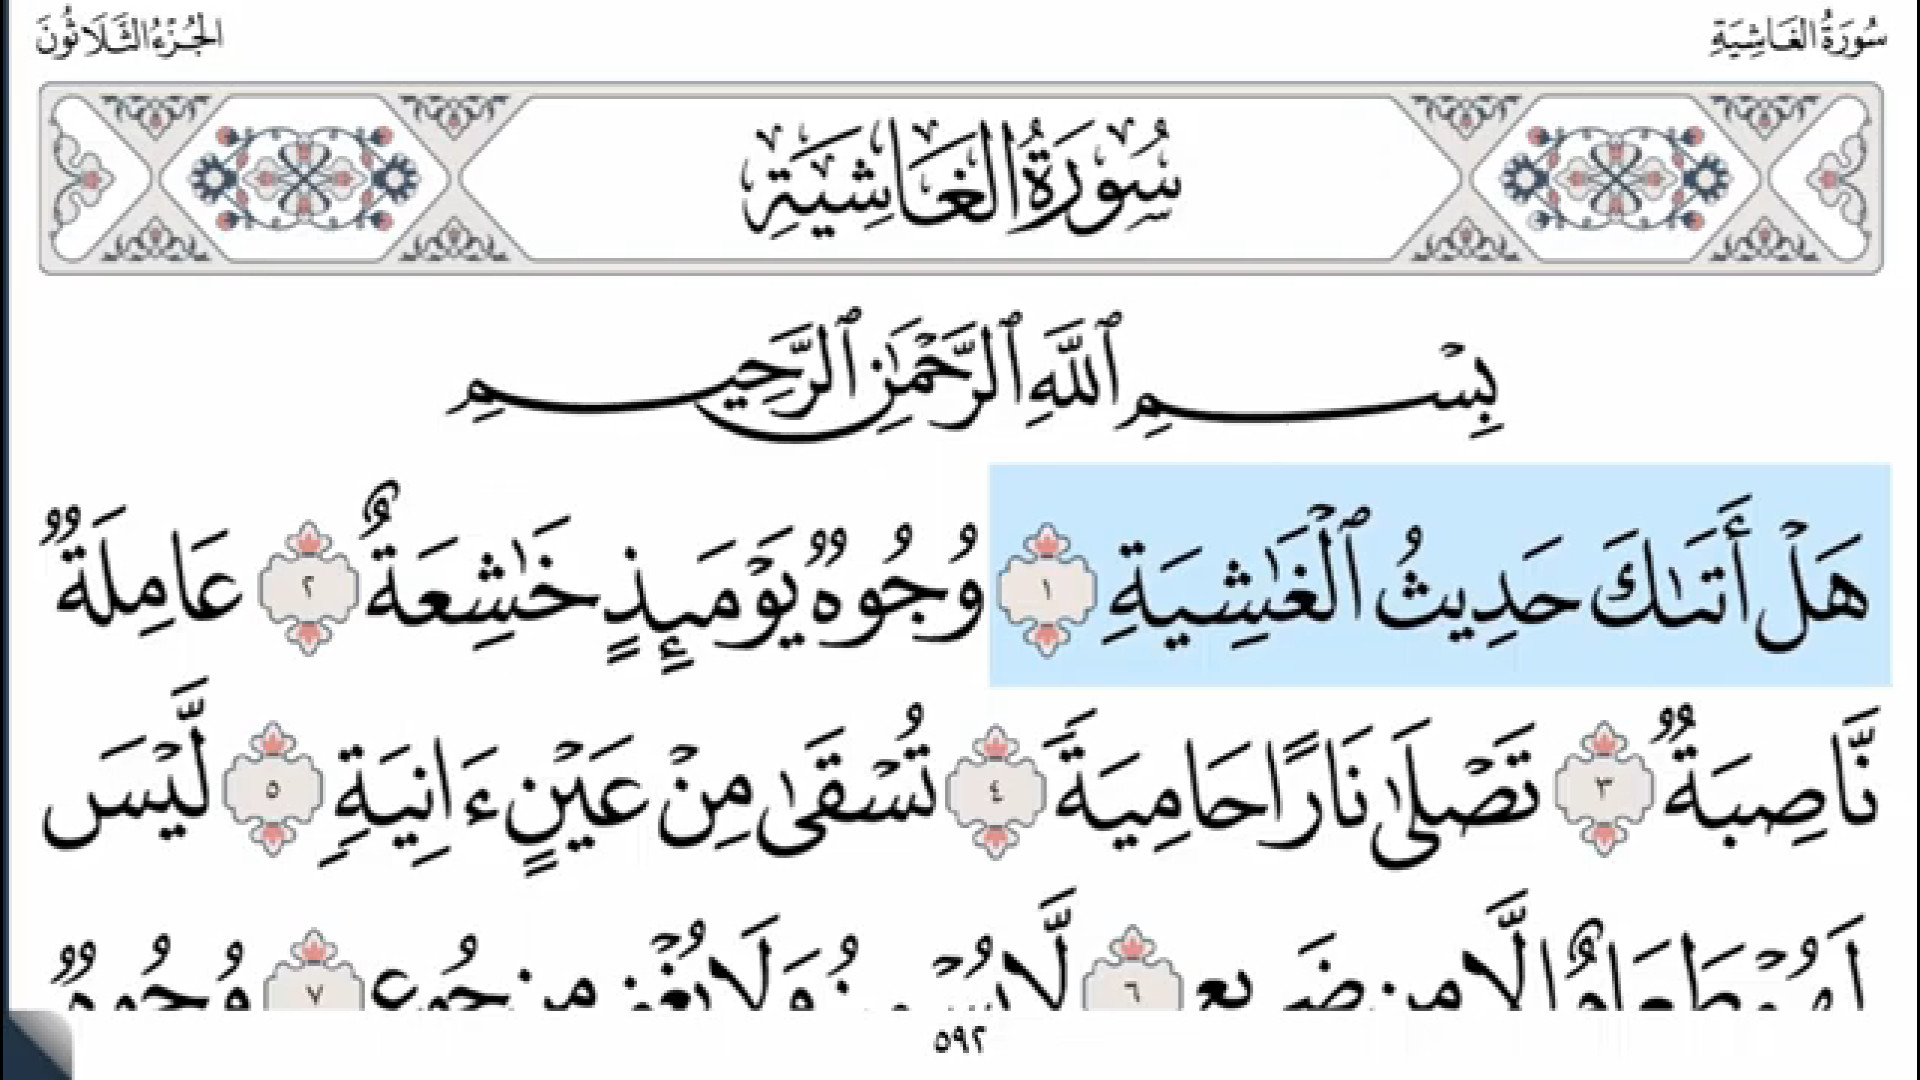 سُورَةُ الغَاشِيَةِ
الجُزْءُ الثَّلَاثُونَ
سُورَةُ الغَاشِيَةِ
بِسْمِ ٱللَّهِ ٱلرَّحْمَٰنِ ٱلرَّحِيمِ
هَلْ أَتَىٰكَ حَدِيثُ ٱلْغَٰشِيَةِ ١ وُجُوهٌ يَوْمَئِذٍ خَٰشِعَةٌ ٢ عَامِلَةٌ
نَّاصِبَةٌ ٣ تَصْلَىٰ نَارًا حَامِيَةً ٤ تُسْقَىٰ مِنْ عَيْنٍ ءَانِيَةٍ ٥ لَّيْسَ
لَهُمْ طَعَامٌ إِلَّا مِن ضَرِيعٍ ٦ لَّا يُسْمِنُ وَلَا يُغْنِى مِن جُوعٍ ٧ وُجُوهٌ
٥٩٢